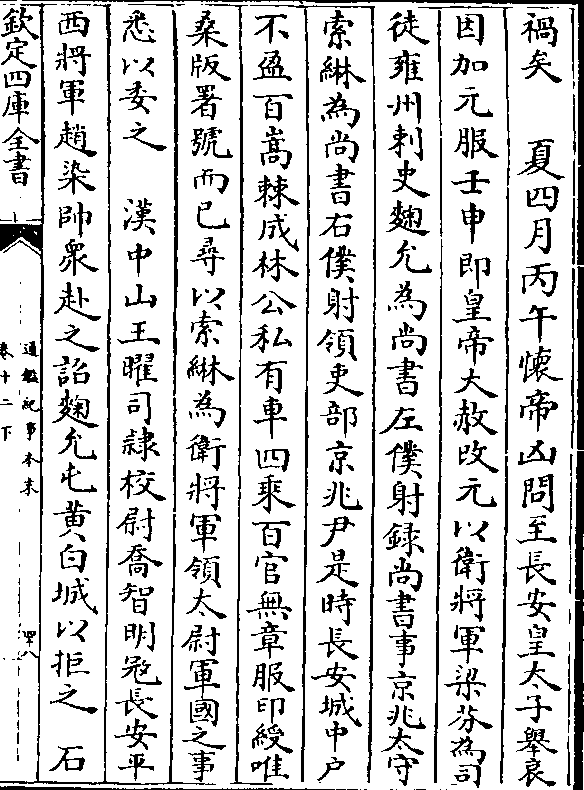 禍矣　夏四月丙午懷帝凶問至長安皇太子舉哀
因加元服壬申即皇帝大赦改元以衛將軍梁芬為司
徒雍州刺史麴允為尚書左僕射録尚書事京兆太守
索綝為尚書右僕射領吏部京兆尹是時長安城中户
不盈百嵩棘成林公私有車四乘百官無章服印綬唯
桑版署號而已尋以索綝為衛將軍領太尉軍國之事
悉以委之　漢中山王曜司隸校尉喬智明冦長安平
西將軍趙染帥衆赴之詔麴允屯黄白城以拒之　石
欽定四庫全書
通鑑紀事本末
卷十二下
四十八